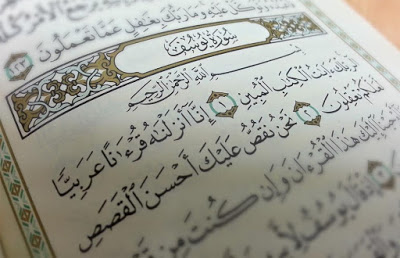 عَلَيْهِ وَمَا رَبُّكَ بِغَٰفِلٍ عَمَّا تَعْمَلُونَ ١٢٣
سُورَةُ يُوسُفَ
بِسْمِ ٱللَّهِ ٱلرَّحْمَٰنِ ٱلرَّحِيمِ
تِلْكَ ءَايَٰتُ ٱلْكِتَٰبِ ٱلْمُبِينِ ١ إِنَّآ أَنزَلْنَٰهُ قُرْءَٰنًا عَرَبِيًّا
لَّعَلَّكُمْ تَعْقِلُونَ ٢ نَحْنُ نَقُصُّ عَلَيْكَ أَحْسَنَ ٱلْقَصَصِ
إِلَيْكَ هَٰذَا ٱلْقُرْءَانَ وَإِن كُنتَ مِن
٣ إِذْ قَالَ يُوسُفُ